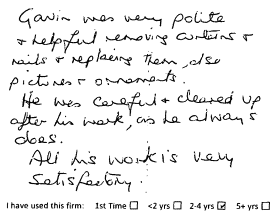 Gavin was very polite
& helpful removing curtains &
rails & replacing them, also
pictures & ornaments.
He was careful & cleared up
after his work, as he always
does.
All his work is very
satisfactory.
I have used this firm: 1st Time ☐ <2 yrs ☐ 2-4 yrs ☑ 5+ yrs ☐